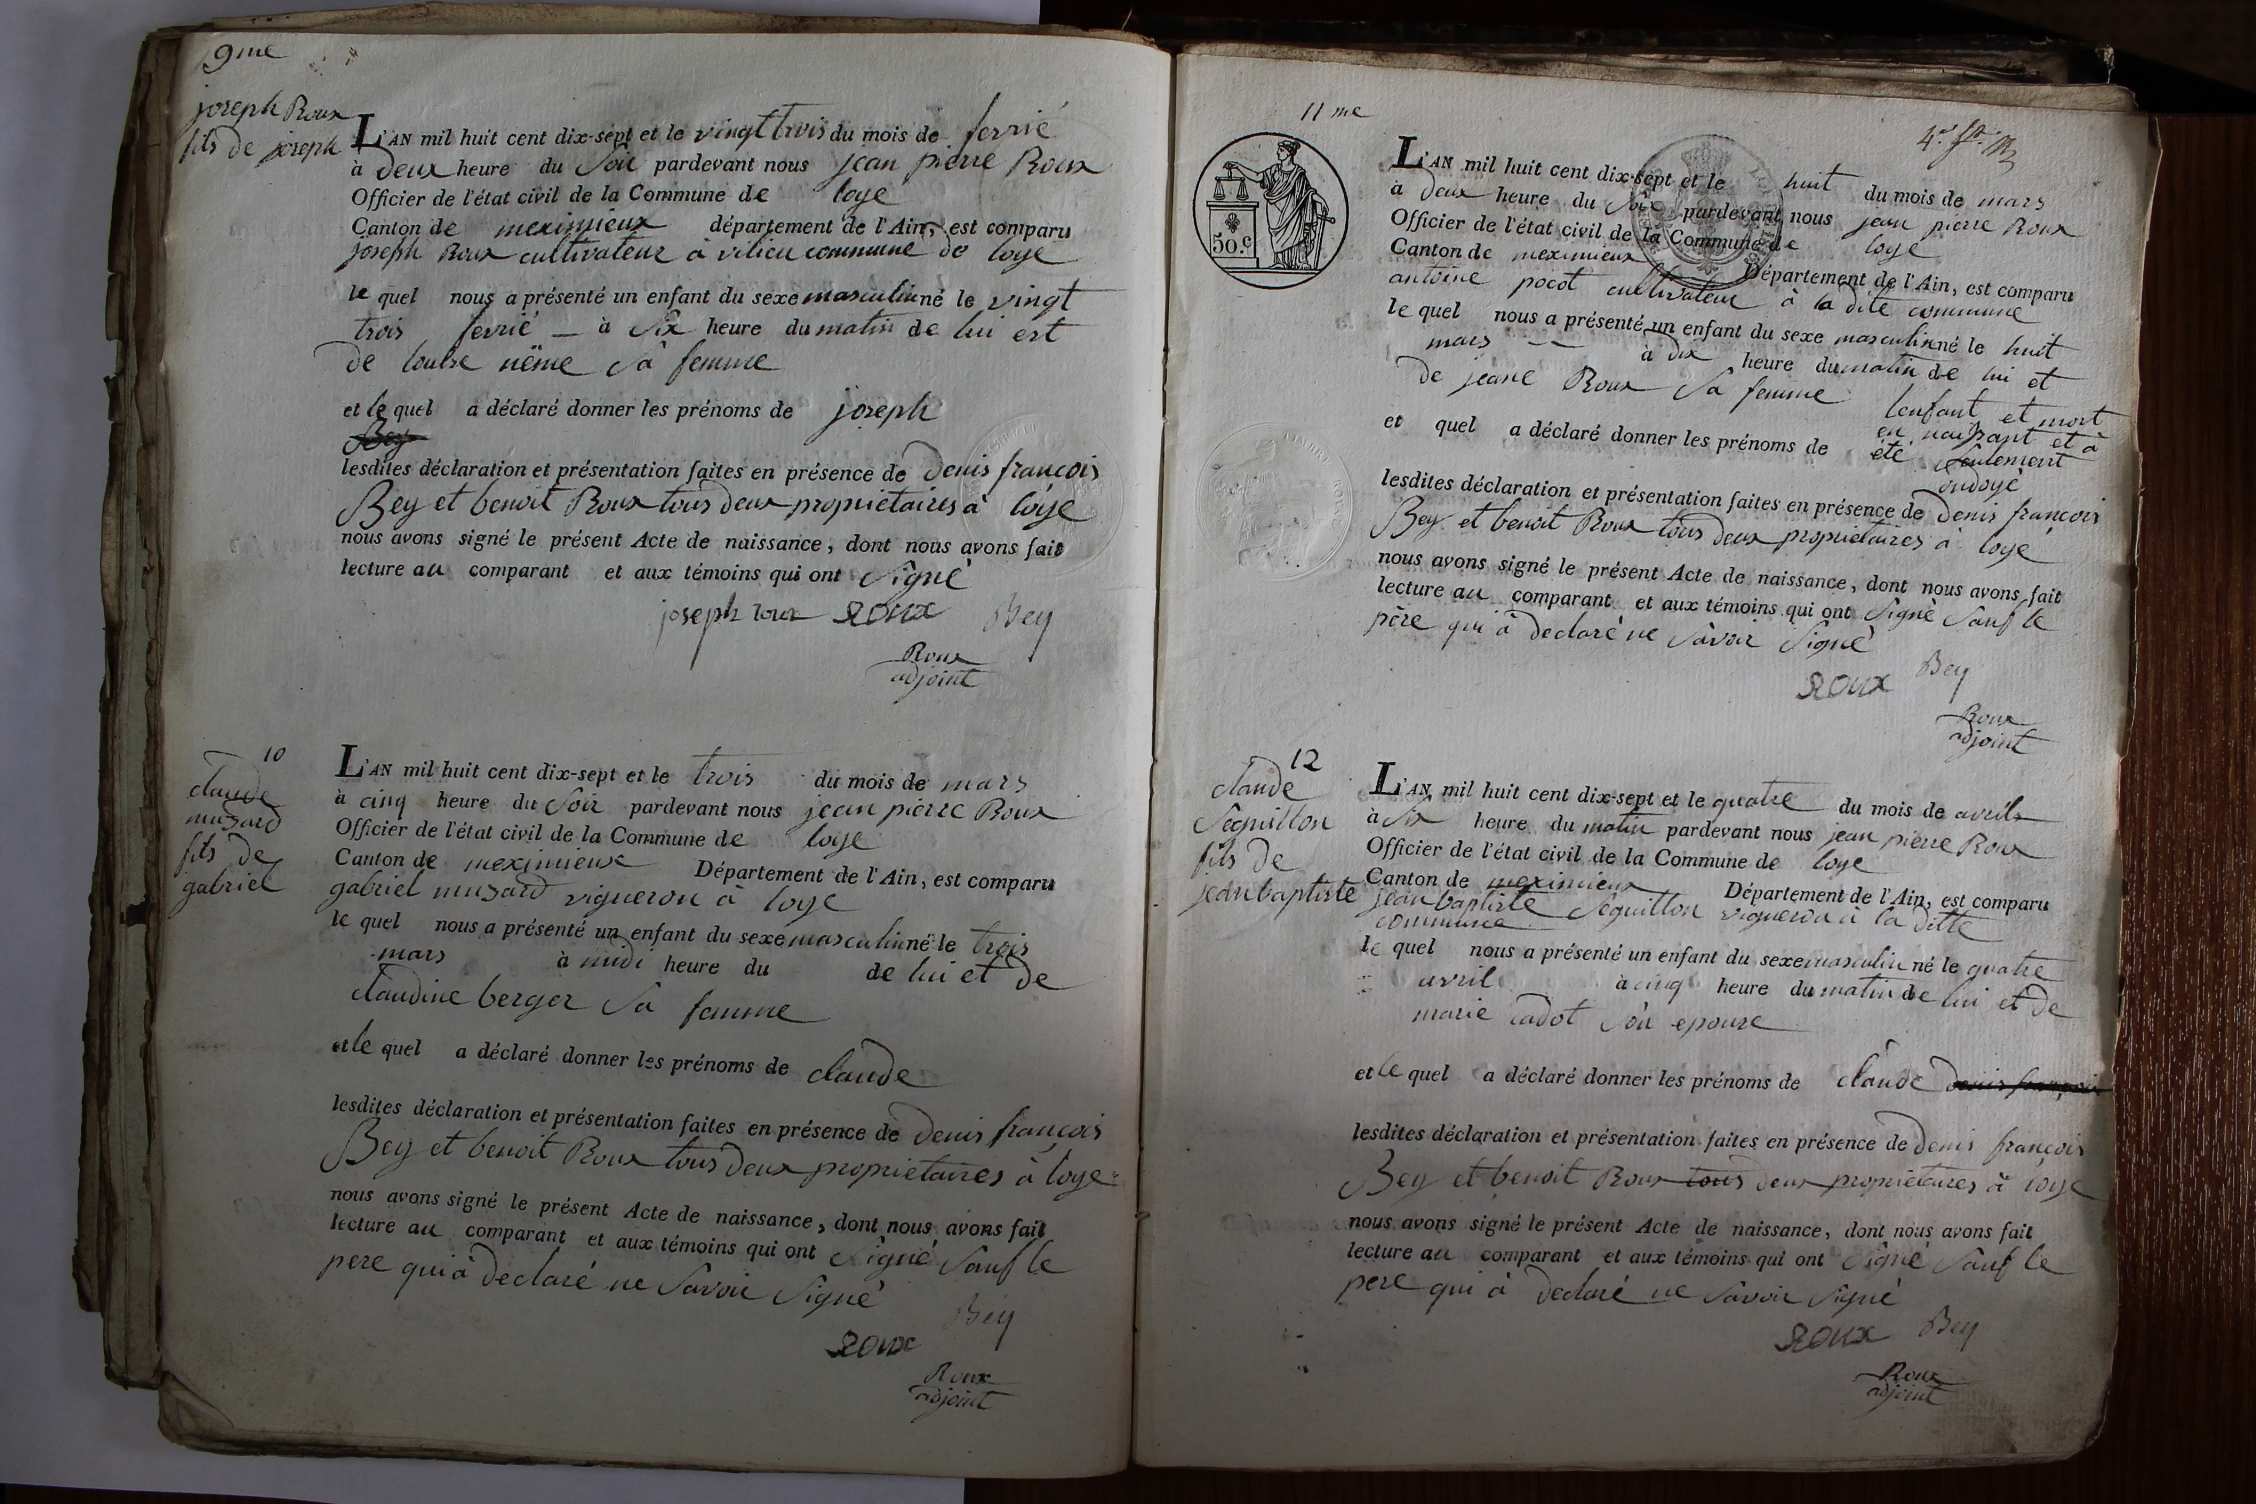 9me
joseph Roux
fils de joseph
L'AN mil huit cent dix-sept et le vingt trois du mois de fevrié
à deux heure du Soir pardevant nous jean pierre Roux
Officier de l'état civil de la Commune de loye
Canton de meximieux département de l'Ain, est comparu
joseph Roux cultivateur à vilieu commune de loye
le quel nous a présenté un enfant du sexe masculin né le vingt
trois fevrié — à Six heure du matin de lui est
de louise même Sà femme
et le quel a déclaré donner les prénoms de joseph
Bey
lesdites déclaration et présentation faites en présence de Denis françois
Bey et benoit Roux tous deux proprietaires à loye
nous avons signé le présent Acte de naissance, dont nous avons fait
lecture au comparant et aux témoins qui ont Signé
joseph roux ROUX Bey
Roux
adjoint
10
claude
musard
fils de
gabriel
L'AN mil huit cent dix-sept et le trois du mois de mars
à cinq heure du Soir pardevant nous jean pierre Roux
Officier de l'état civil de la Commune de loye
Canton de meximieux Département de l'Ain, est comparu
gabriel musard vigneron à loye
le quel nous a présenté un enfant du sexe masculin né le trois
mars à midi heure du de lui et de
claudine berger Sà femme
et le quel a déclaré donner les prénoms de claude
lesdites déclaration et présentation faites en présence de Denis françois
Bey et benoit Roux tous deux proprietaires à loye
nous avons signé le présent Acte de naissance, dont nous avons fait
lecture au comparant et aux témoins qui ont Signé Sauf le
pere qui à declaré ne Savoir Signé
Bey
ROUX
Roux
adjoint
11me
50.c
L'AN mil huit cent dix-sept et le huit du mois de mars
à deux heure du Soir pardevant nous jean pierre Roux
Officier de l'état civil de la Commune de loye
Canton de meximieux Département de l'Ain, est comparu
antoine pocot cultivateur à la dite commune
le quel nous a présenté un enfant du sexe masculin né le huit
mars — à dix heure du matin de lui et
de jeane Roux Sa femme
lenfant et mort
en naissant et à
et quel a déclaré donner les prénoms de été Seulement
ondoyé
lesdites déclaration et présentation faites en présence de Denis françois
Bey et benoit Roux tous deux proprietaires à loye
nous avons signé le présent Acte de naissance, dont nous avons fait
lecture au comparant et aux témoins qui ont Signé Sauf le
père qui à declaré ne Savoir Signé
Bey
ROUX
Roux
adjoint
12
claude
Seguillon
fils de
jean baptiste
L'AN mil huit cent dix-sept et le quatre du mois de avril
à Six heure du matin pardevant nous jean pierre Roux
Officier de l'état civil de la Commune de loye
Canton de meximieux Département de l'Ain, est comparu
jean baptiste Seguillon vigneron à la ditte
commune
le quel nous a présenté un enfant du sexe masculin né le quatre
avril à cinq heure du matin de lui et de
marie cadot Son epouse
et le quel a déclaré donner les prénoms de claude denis françois
lesdites déclaration et présentation faites en présence de denis françois
Bey et benoit Roux tous deux proprietaires à loye
nous avons signé le présent Acte de naissance, dont nous avons fait
lecture au comparant et aux témoins qui ont Signé Sauf le
pere qui à declaré ne Savoir Signé
ROUX Bey
Roux
adjoint